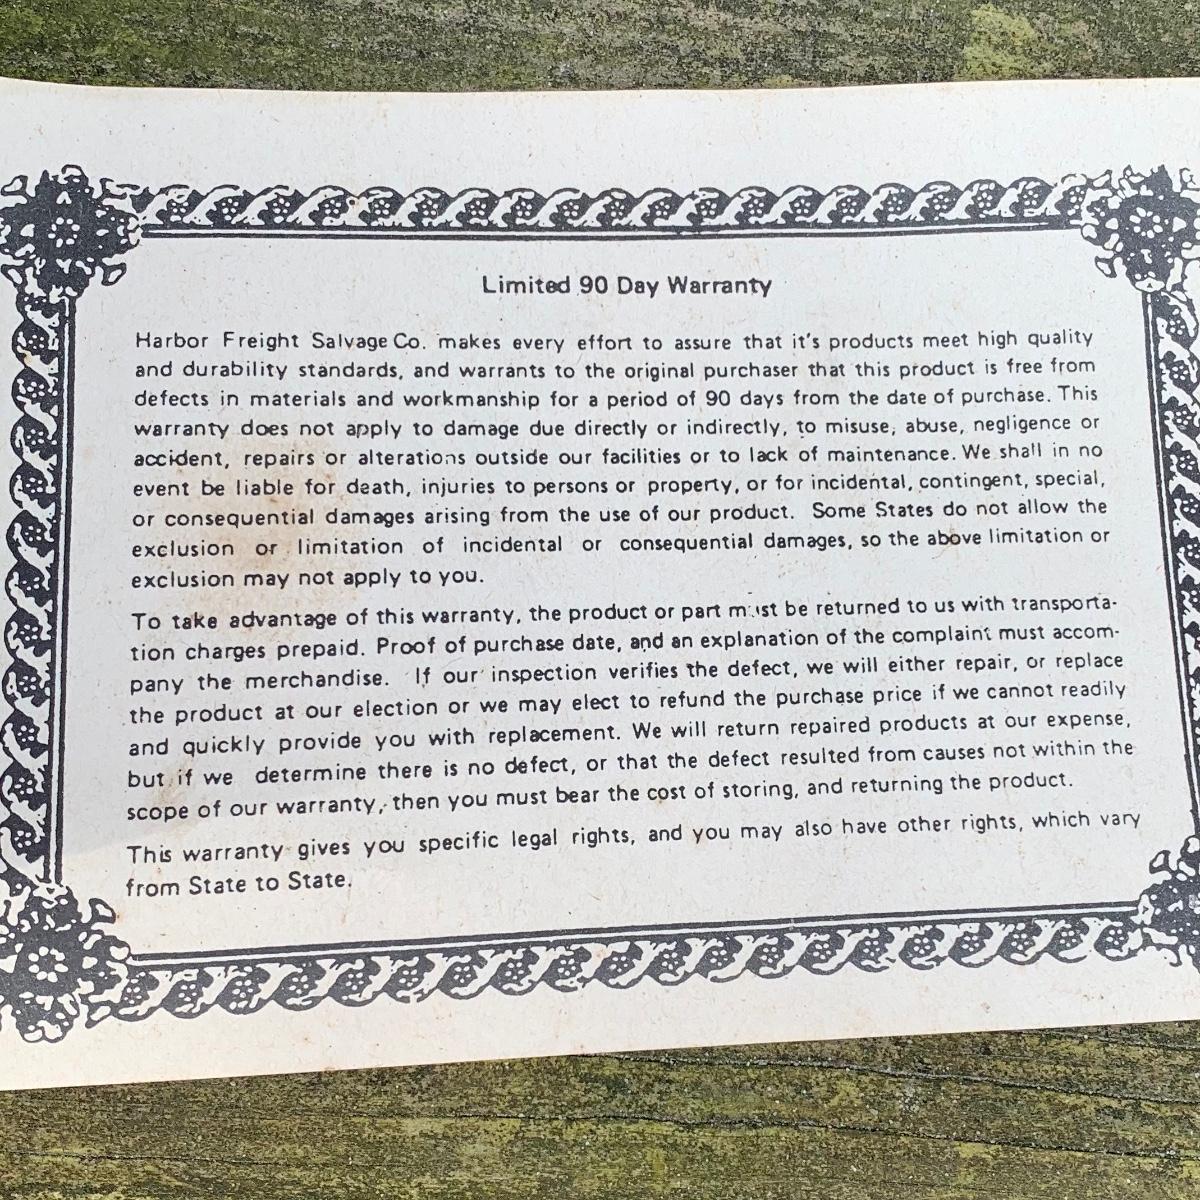 Limited 90 Day Warranty
Harbor Freight Salvage Co. makes every effort to assure that it's products meet high quality
and durability standards, and warrants to the original purchaser that this product is free from
defects in materials and workmanship for a period of 90 days from the date of purchase. This
warranty does not apply to damage due directly or indirectly, to misuse, abuse, negligence or
accident, repairs or alterations outside our facilities or to lack of maintenance. We shall in no
event be liable for death, injuries to persons or property, or for incidental, contingent, special,
or consequential damages arising from the use of our product. Some States do not allow the
exclusion or limitation of incidental or consequential damages, so the above limitation or
exclusion may not apply to you.
To take advantage of this warranty, the product or part must be returned to us with transporta-
tion charges prepaid. Proof of purchase date, and an explanation of the complaint must accom-
pany the merchandise. If our inspection verifies the defect, we will either repair, or replace
the product at our election or we may elect to refund the purchase price if we cannot readily
and quickly provide you with replacement. We will return repaired products at our expense,
but if we determine there is no defect, or that the defect resulted from causes not within the
scope of our warranty, then you must bear the cost of storing, and returning the product.
This warranty gives you specific legal rights, and you may also have other rights, which vary
from State to State.